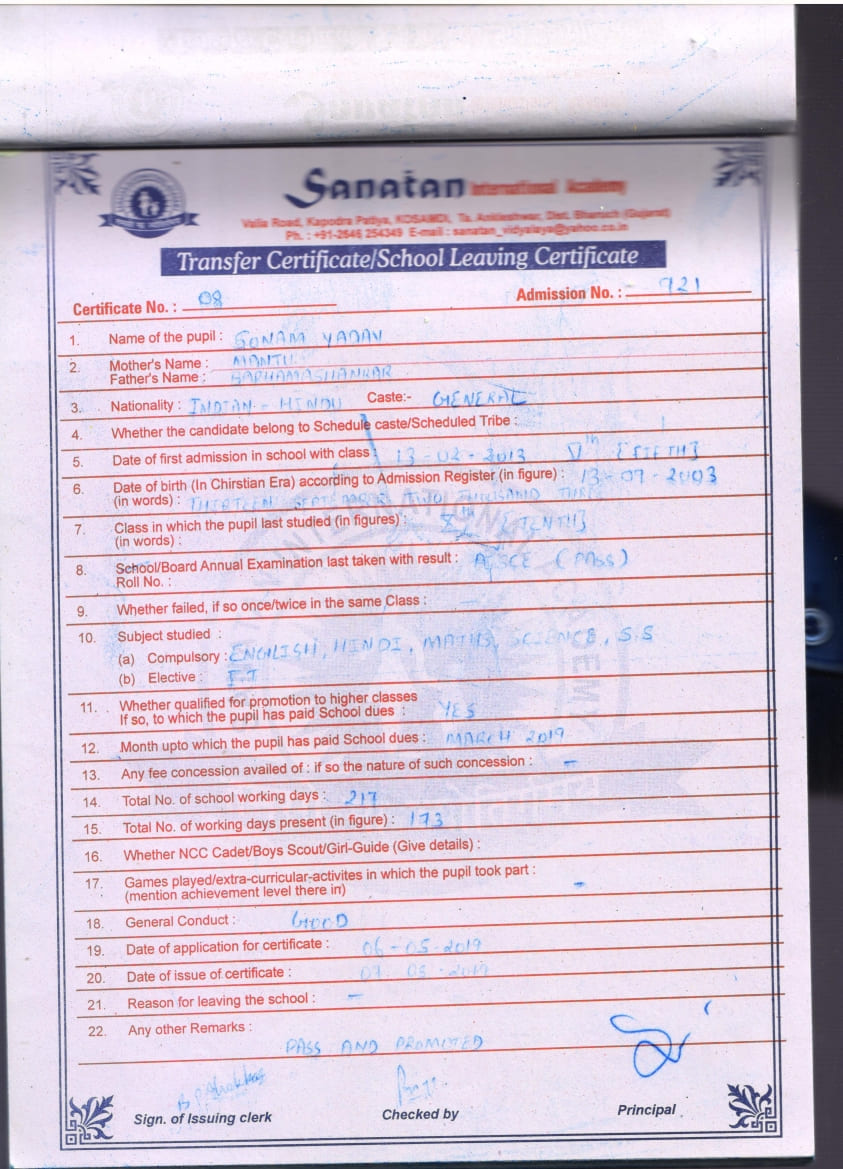 Sanatan International Academy
Valia Road, Kapodra Patiya, KOSAMDI, Ta. Ankleshwar, Dist. Bharuch (Gujarat)
Ph. : +91-2646 254349 E-mail : sanatan_vidyalaya@yahoo.co.in
Transfer Certificate/School Leaving Certificate
Certificate No. : 08 Admission No. : 921
1. Name of the pupil : SONAM YADAV
2. Mother's Name : MANJU
Father's Name : BARHAMASHANKAR
3. Nationality : INDIAN - HINDU Caste:- GENERAL
4. Whether the candidate belong to Schedule caste/Scheduled Tribe :
5. Date of first admission in school with class : 13-02-2013 Vth [FIFTH]
6. Date of birth (In Chirstian Era) according to Admission Register (in figure) : 13-09-2003
(in words) : THIRTEEN SEPTEMBER TWO THOUSAND THREE
7. Class in which the pupil last studied (in figures) : Xth [TENTH]
(in words) :
8. School/Board Annual Examination last taken with result : AISCE (PASS)
Roll No. :
9. Whether failed, if so once/twice in the same Class : -
10. Subject studied :
(a) Compulsory : ENGLISH, HINDI, MATHS, SCIENCE, S.S
(b) Elective :
11. Whether qualified for promotion to higher classes
If so, to which the pupil has paid School dues : YES
12. Month upto which the pupil has paid School dues : MARCH 2019
13. Any fee concession availed of : if so the nature of such concession : -
14. Total No. of school working days : 217
15. Total No. of working days present (in figure) : 173
16. Whether NCC Cadet/Boys Scout/Girl-Guide (Give details) :
17. Games played/extra-curricular-activites in which the pupil took part :
(mention achievement level there in) -
18. General Conduct : GOOD
19. Date of application for certificate : 06-05-2019
20. Date of issue of certificate : 07-05-2019
21. Reason for leaving the school : -
22. Any other Remarks :
PASS AND PROMOTED
Sign. of Issuing clerk Checked by Principal